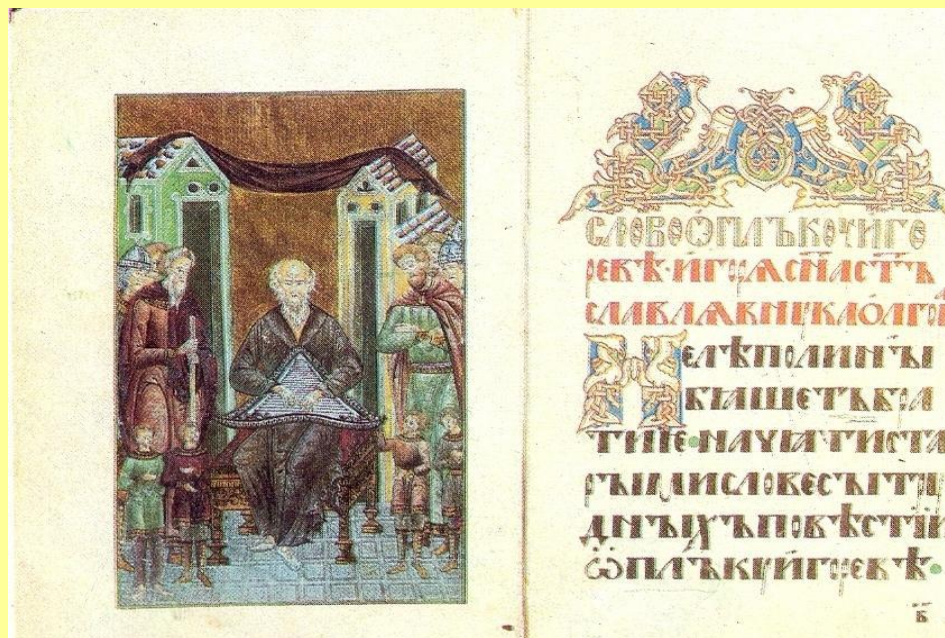 СЛОВО Ѿ ПЛЪКОЧИГО
РЕВѢ·ИГОРѦСНАСТЪ
СЛАВЛѦВНꙊКАОЛГО
НЕЛѢПОЛИНЫ
БѦШЕТЪБРА
ТИЕ·НАЧѦТИСТА
РЫМИСЛОВЕСЫТРꙊ
ДНЫХЪПОВѢСТІИ
ѾПЛЪКꙊИГОРЕВѢ·
Б